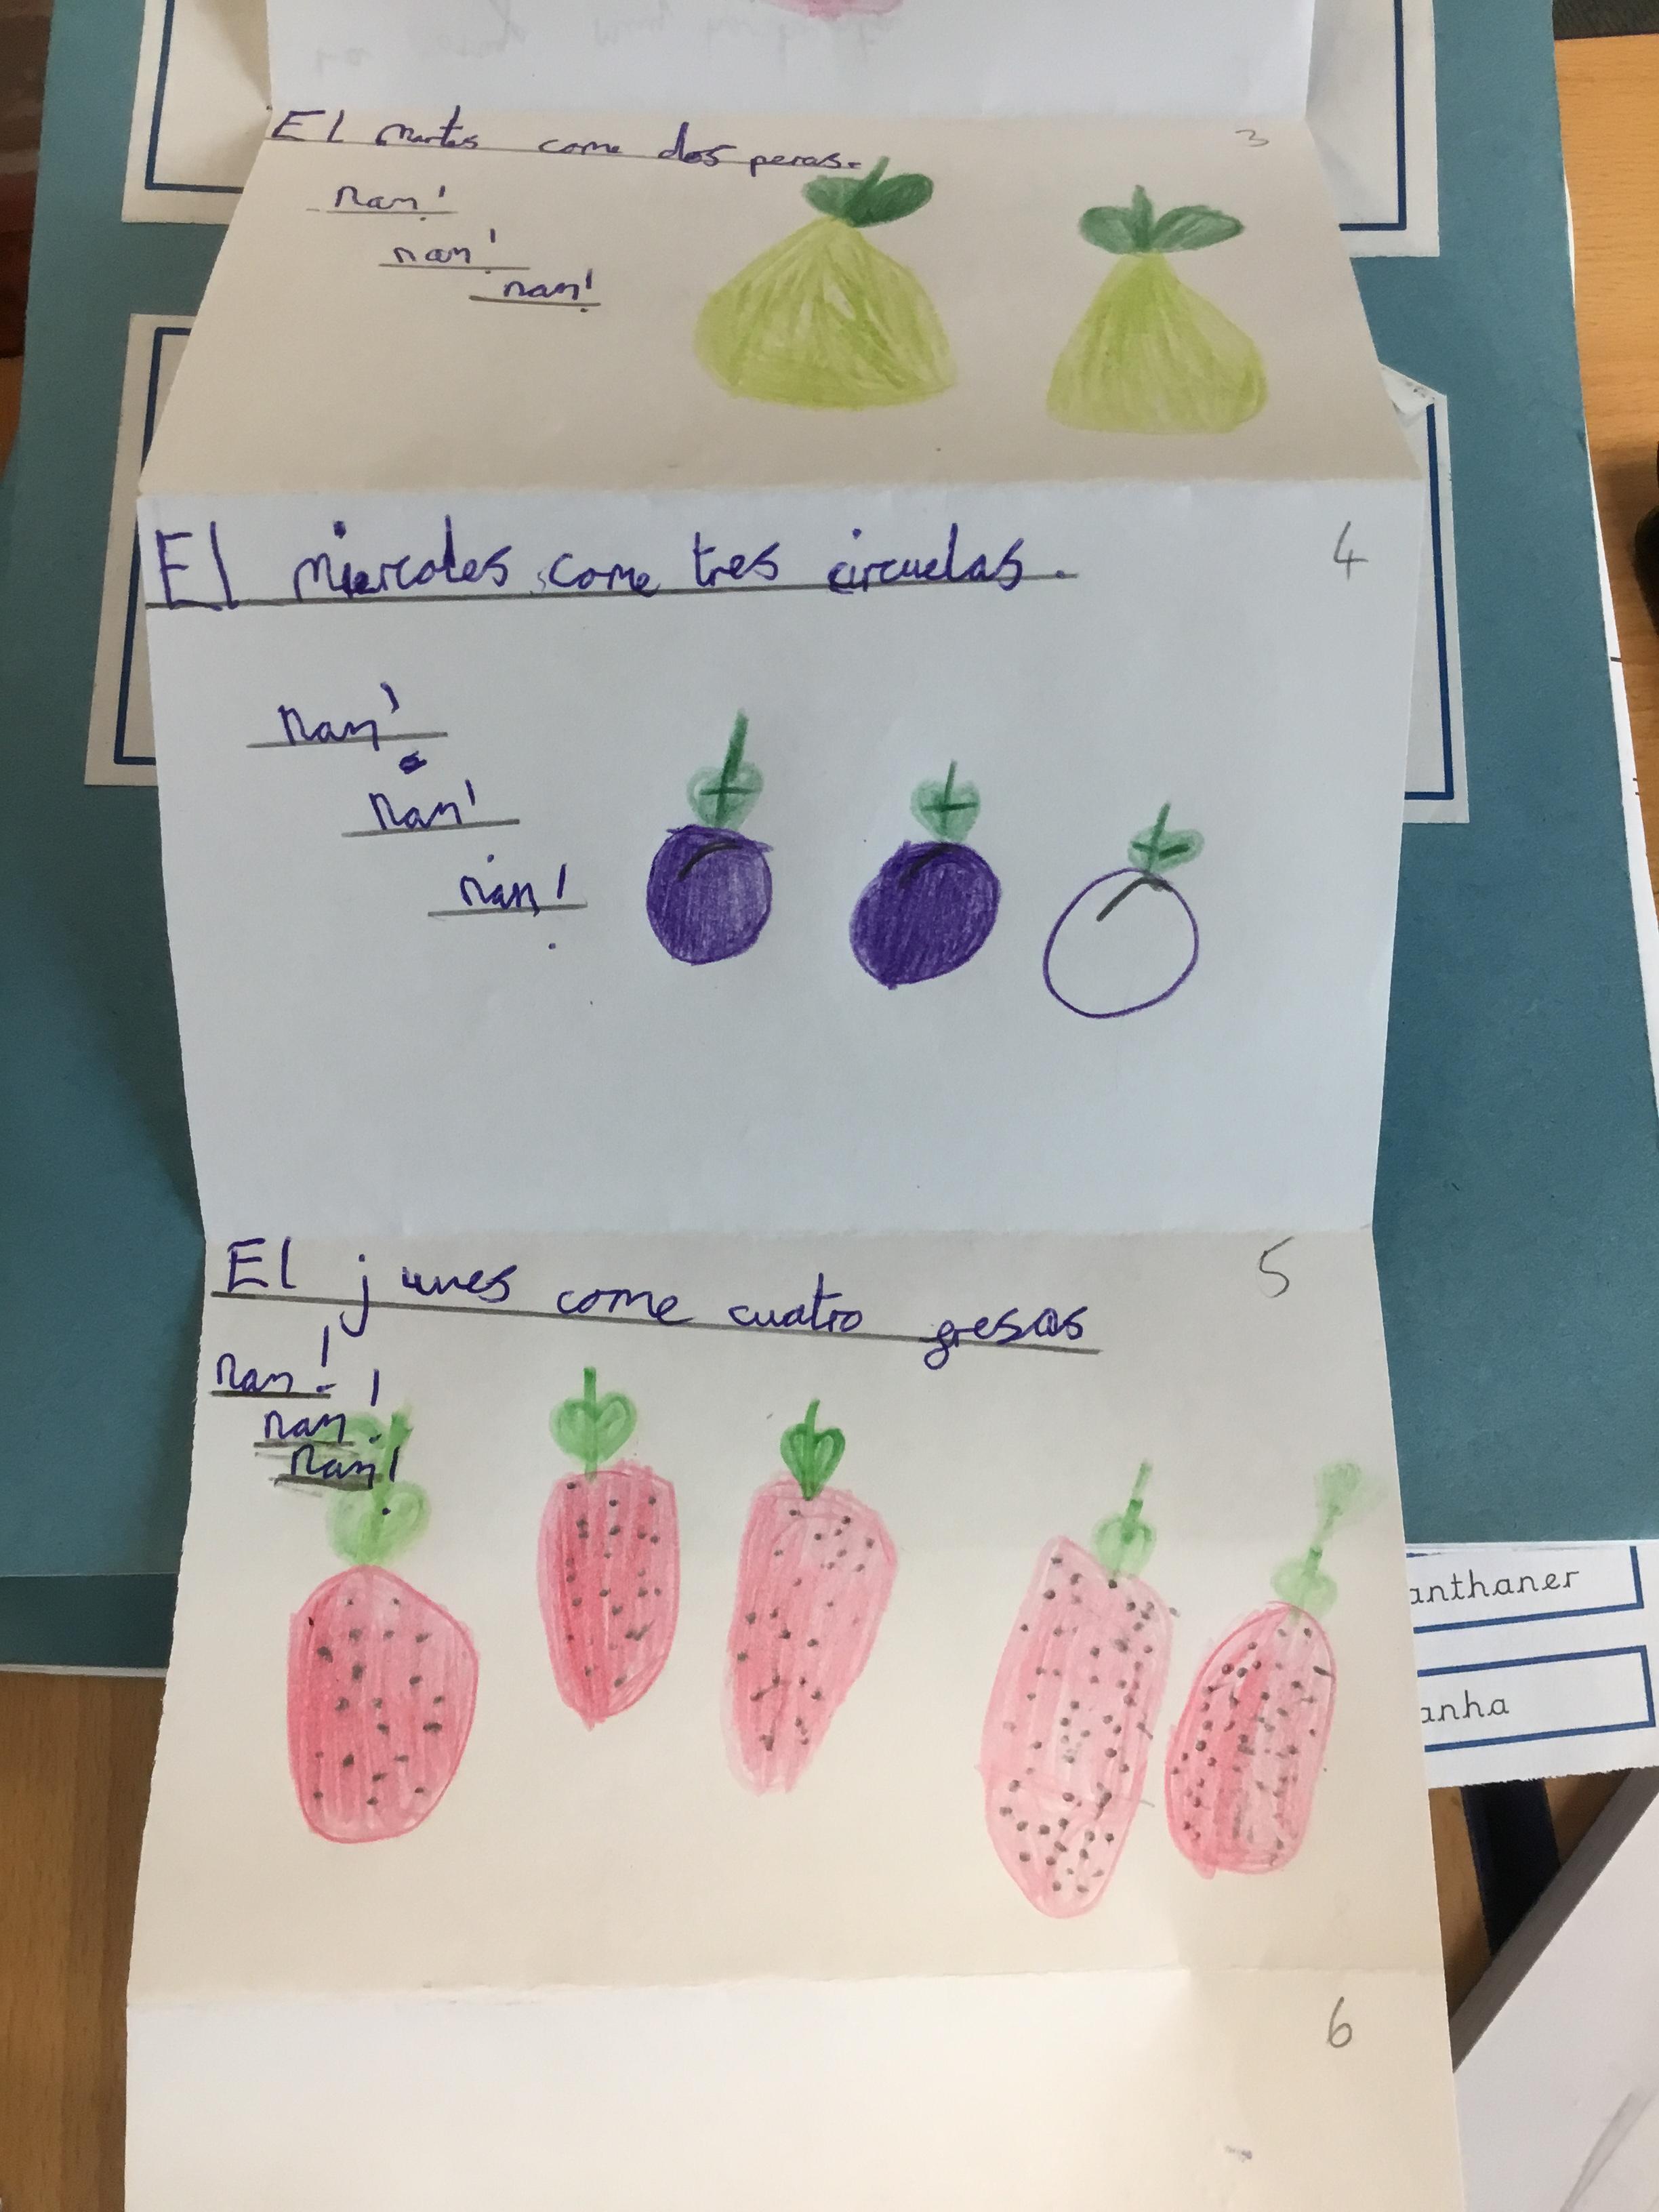 El martes come dos peras.
3
ñam!
ñam!
ñam!
El miercoles come tres circuelas.
4
ñam!
ñam!
ñam!
El junes come cuatro gresas
5
ñam!
ñam!
ñam!
anthaner
anha
6